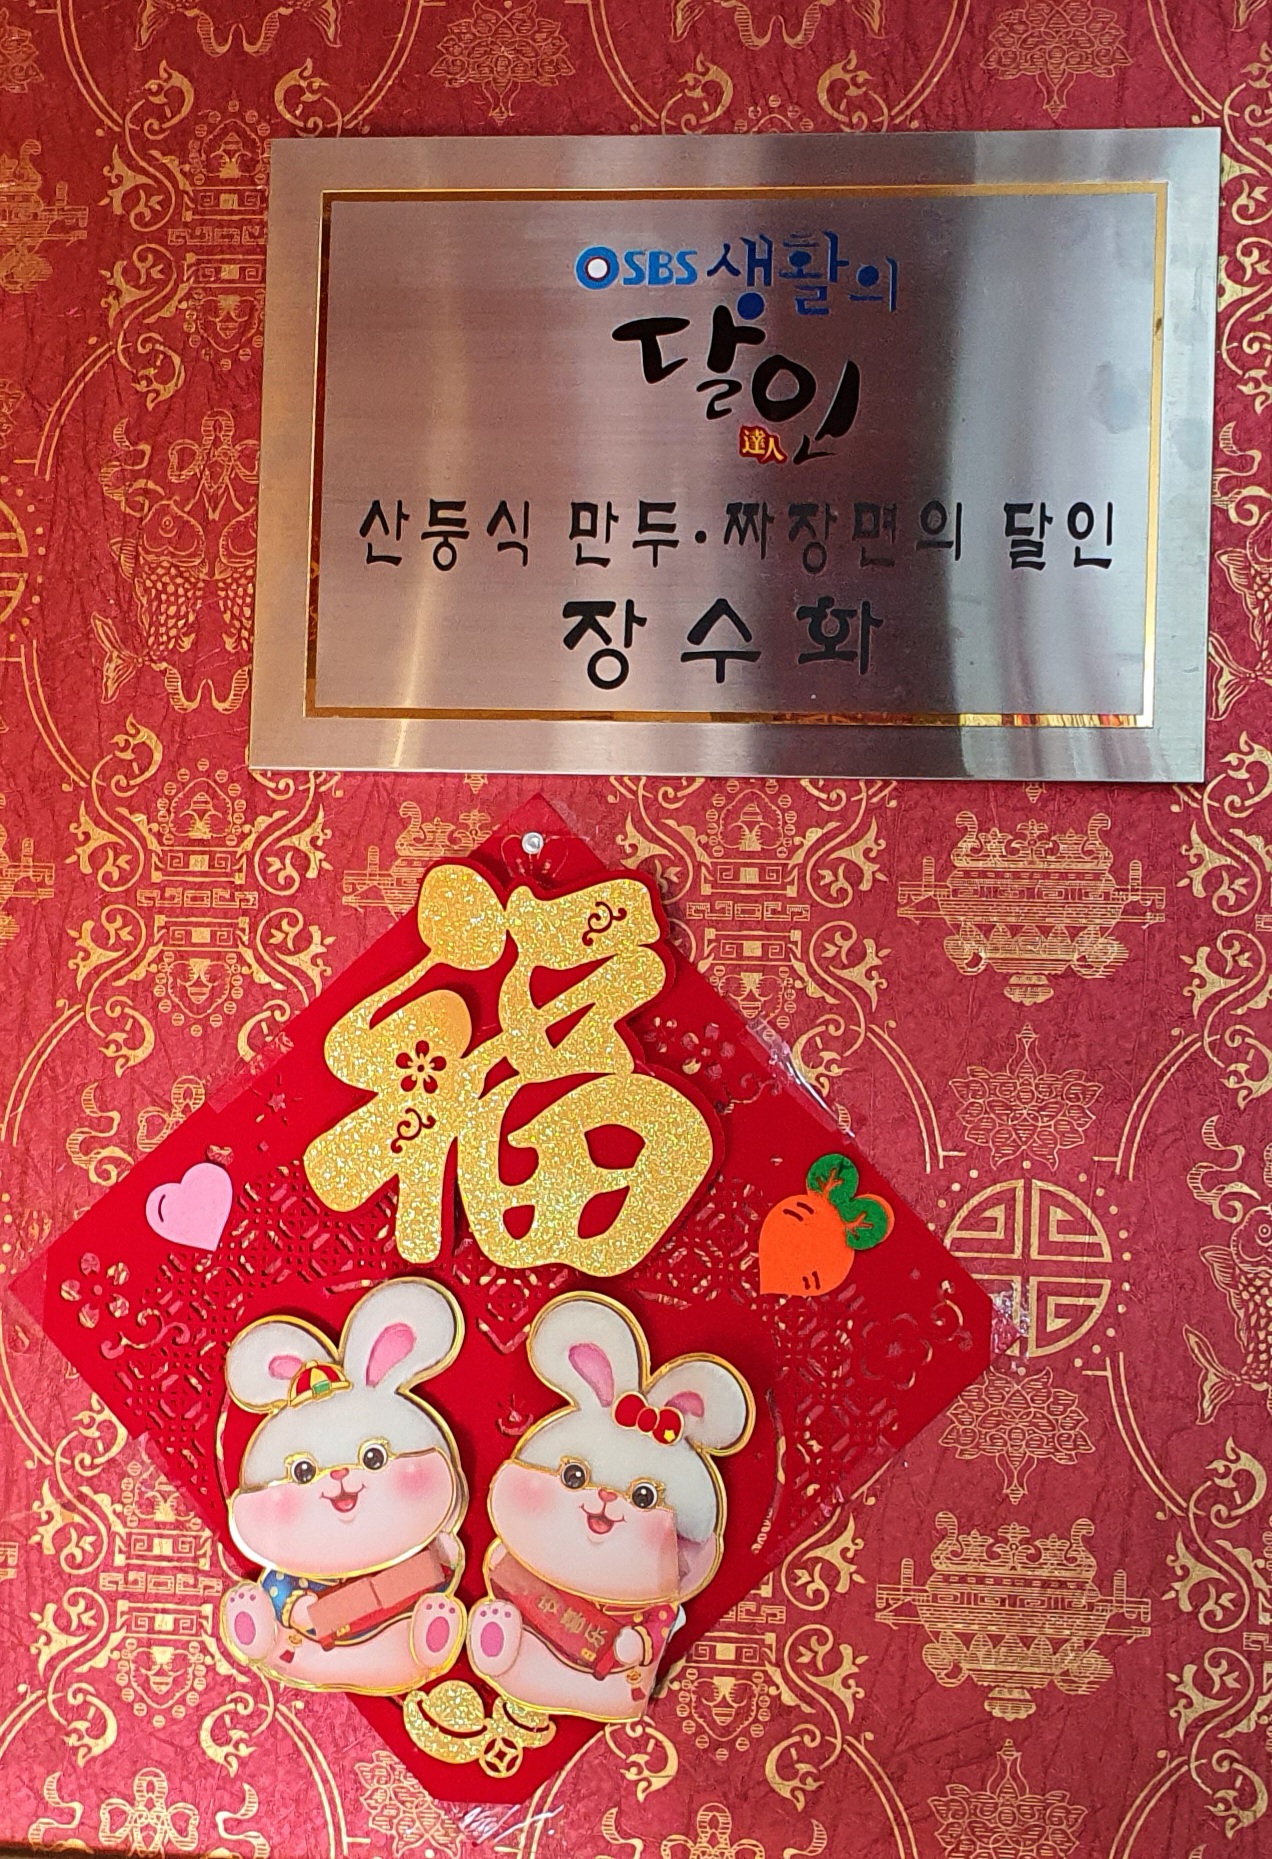 SBS 생활의
달인
達人
산둥식 만두·짜장면의 달인
장수화
福